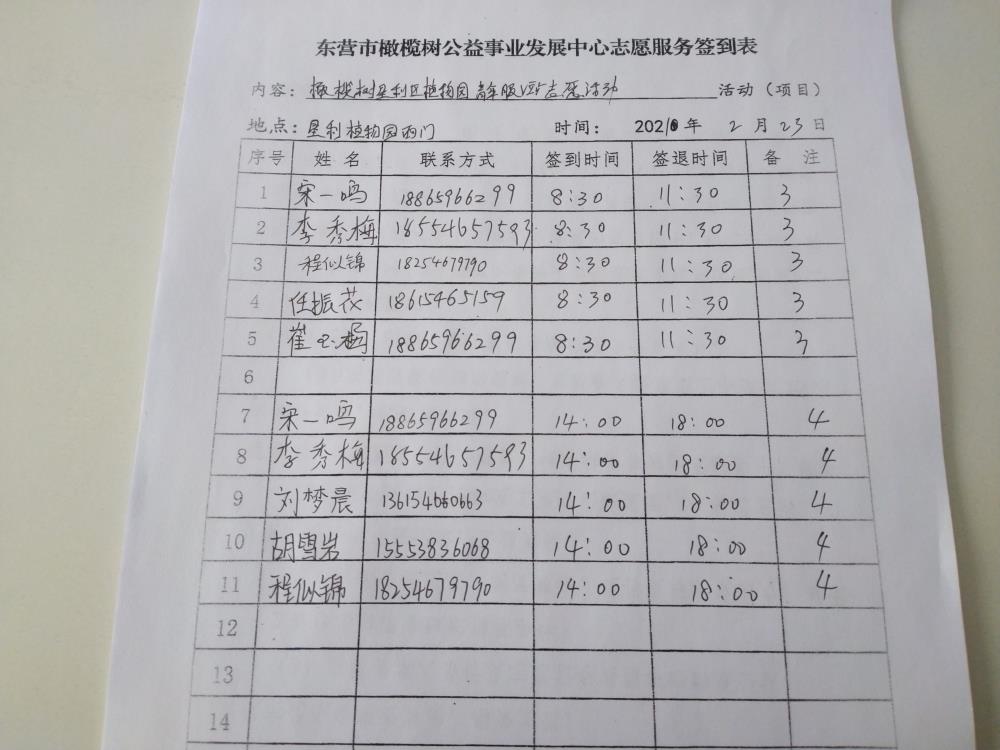 东营市橄榄树公益事业发展中心志愿服务签到表
内容：橄榄树垦利区植物园青年服V站志愿活动 活动（项目）
地点：垦利植物园西门 时间：2021年 2月23日
序号 姓名 联系方式 签到时间 签退时间 备注
1 宋一鸣 18865966299 8:30 11:30 3
2 李秀梅 18554657593 8:30 11:30 3
3 程似锦 18254679790 8:30 11:30 3
4 任振花 18615465159 8:30 11:30 3
5 崔玉涵 18865966299 8:30 11:30 3
6
7 宋一鸣 18865966299 14:00 18:00 4
8 李秀梅 18554657593 14:00 18:00 4
9 刘梦晨 136154660663 14:00 18:00 4
10 胡雪岩 15553836068 14:00 18:00 4
11 程似锦 18254679790 14:00 18:00 4
12
13
14